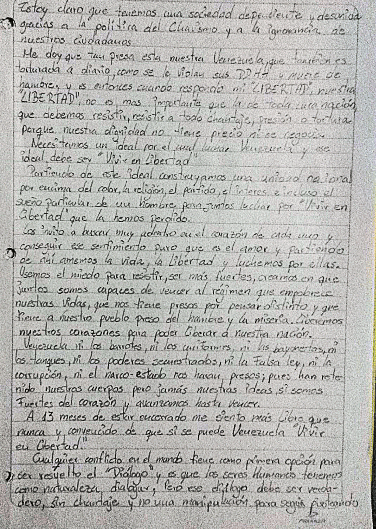 Estoy claro que tenemos una sociedad dependiente y desunida
gracias a la política del Chavismo y a la ignorancia de
nuestros ciudadanos.
Me doy que tan presa esta nuestra Venezuela, que también es
torturada a diario, como se le violan sus DDHH y muere de
hambre, y es entonces cuando respondo mi LIBERTAD, nuestra
"LIBERTAD" no es mas importante que la de toda una nación
que debemos resistir, resistir a todo chantaje, presión o tortura
porque nuestra dignidad no tiene precio ni se negocia.
Necesitamos un ideal por el cual luchar Venezuela y ese
ideal debe ser "Vivir en Libertad"
Partiendo de este ideal construyamos una unidad nacional
por encima del color, la religión, el partido, el interes e incluso el
sueño particular de un hombre, para juntos luchar por "Vivir en
Libertad" que la hemos perdido.
Los invito a buscar muy adentro en el corazón de cada uno y
conseguir ese sentimiento puro que es el amor y partiendo
de ahí amemos la vida, la libertad y luchemos por ellas.
Usemos el miedo para resistir, ser más fuertes, creamos en que
juntos somos capaces de vencer al régimen que empobrece
nuestras vidas, que nos tiene presos por pensar distinto y que
tiene a nuestro pueblo preso del hambre y la miseria. Liberemos
nuestros corazones para poder liberar a nuestra nación.
Venezuela ni los barrotes, ni los uniformes, ni las bayonetas, ni
los tanques, ni los poderes secuestrados, ni la falsa ley, ni la
corrupción, ni el narco-estado nos haran presos; pues han rete-
nido nuestros cuerpos pero jamás nuestras ideas, si somos
fuertes del corazón y avanzamos hasta vencer.
A 13 meses de estar encerrado me siento más libre que
nunca y convencido de que si se puede Venezuela "Vivir
en Libertad."
Cualquier conflicto en el mundo tiene como primera opción para
ser resuelto el "Diálogo" y es que los seres Humanos tenemos
como naturaleza dialogar, pero ese diálogo debe ser verda-
dero, sin chantaje y no una manipulación para seguir pisoteando